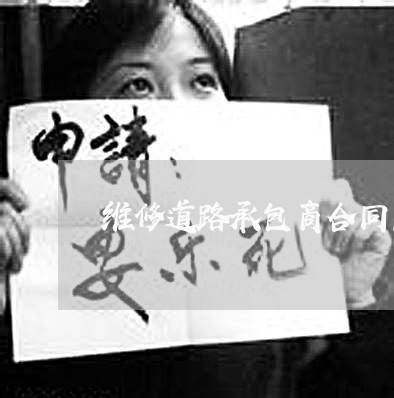 申請：
维修道路承包商合同
安乐死